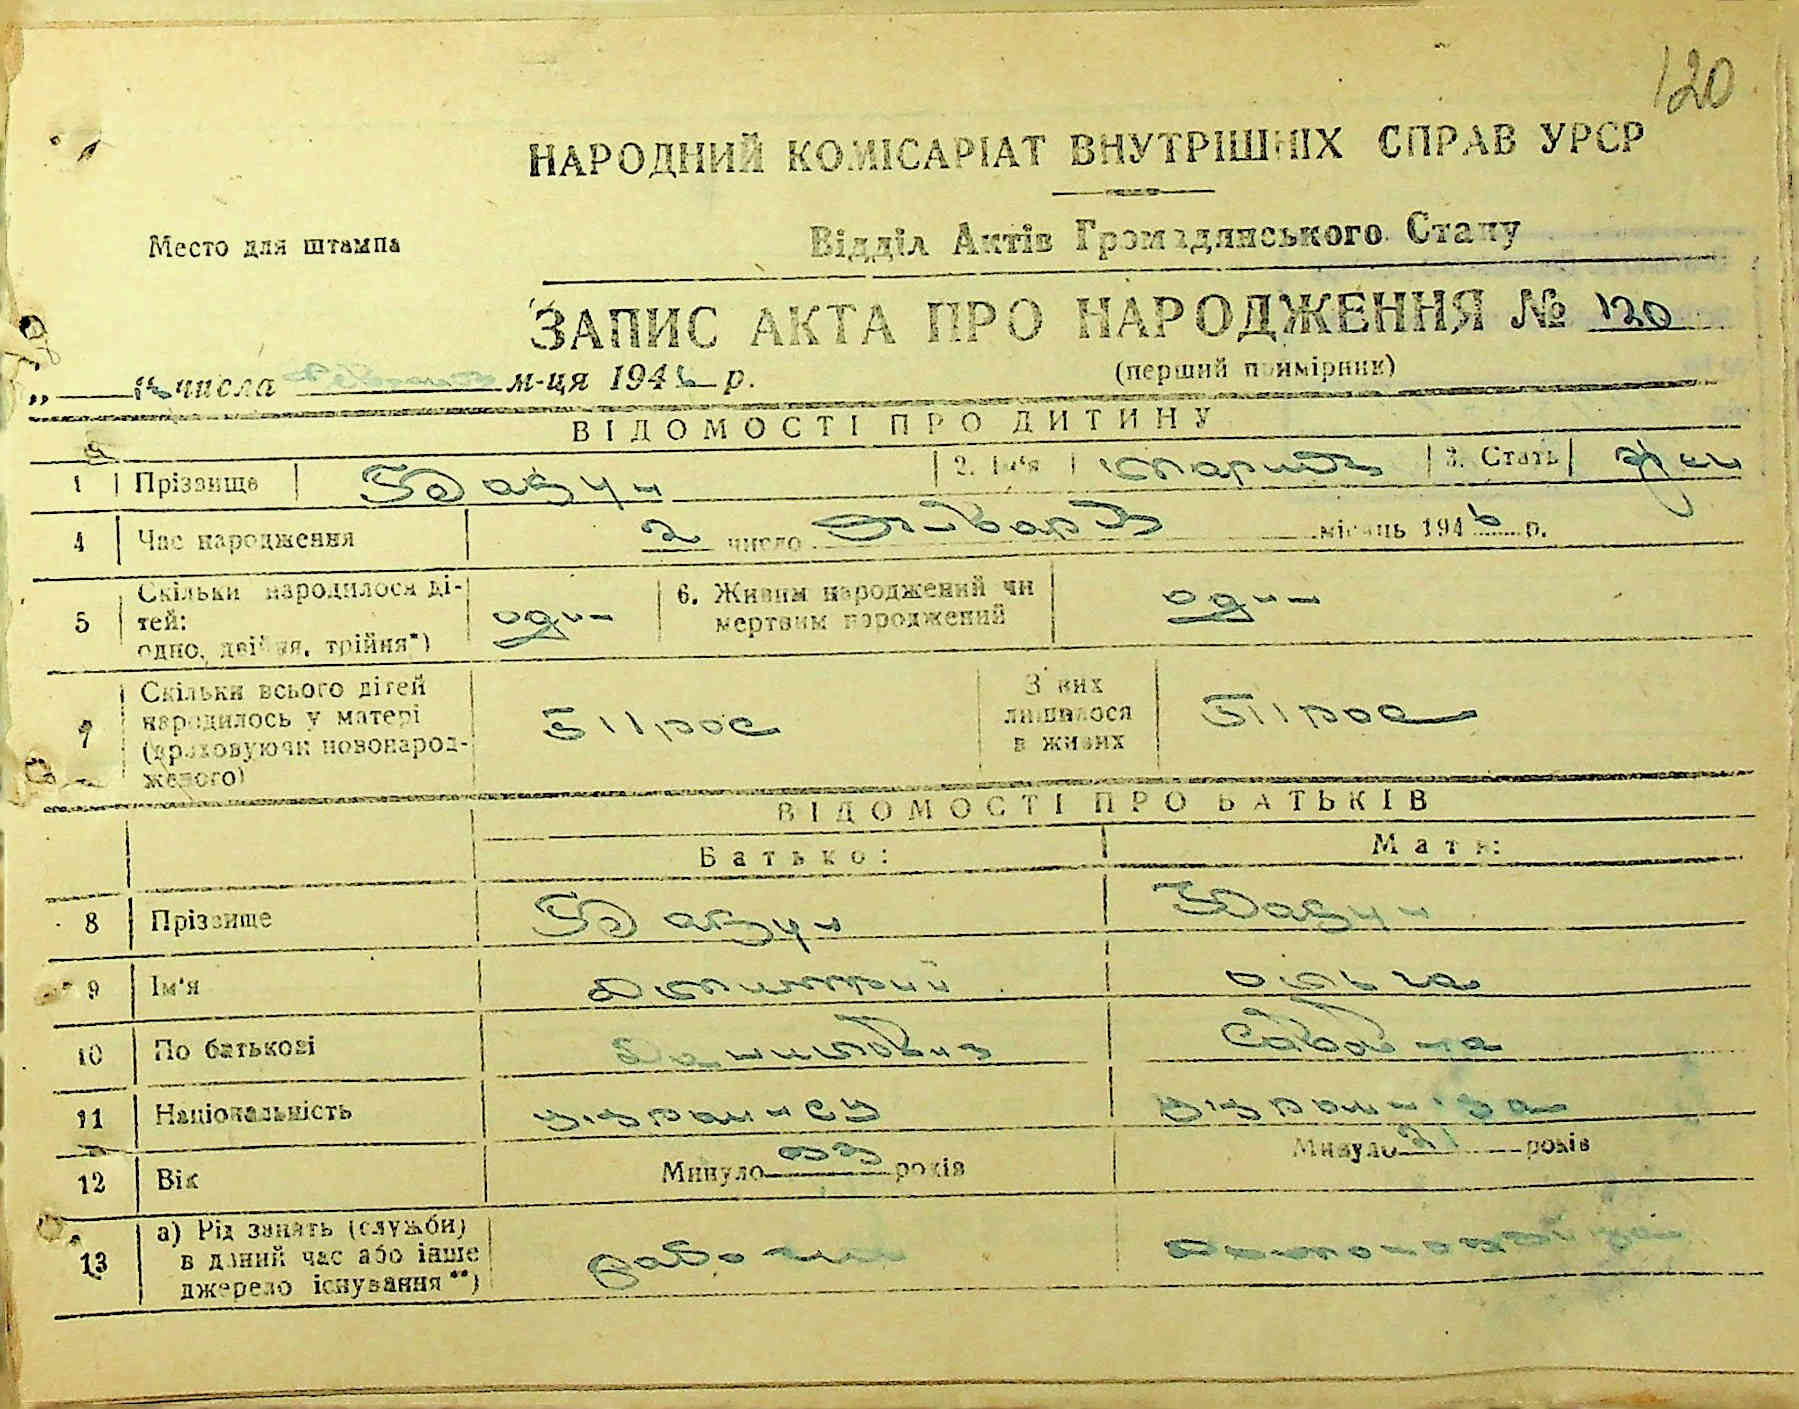 120
НАРОДНИЙ КОМІСАРІАТ ВНУТРІШНІХ СПРАВ УРСР
Место для штампа
Відділ Актів Громадянського Стану
ЗАПИС АКТА ПРО НАРОДЖЕННЯ № 120
(перший примірник)
„ числа м-ця 1946 р.
ВІДОМОСТІ ПРО ДИТИНУ
1 Прізвище 2. Ім'я 3. Стать жен
4 Час народження 2 число января місяць 1946 р.
5 Скільки народилося ді-
тей:
одно, двійня, трійня*) один 6. Живим народжений чи
мертвим народжений один
7 Скільки всього дітей
народилось у матері
(враховуючи новонарод-
женого) З них
лишилося
в живих
ВІДОМОСТІ ПРО БАТЬКІВ
Батько: Мати:
8 Прізвище
9 Ім'я Дмитрий Ольга
10 По батькові Данилович Савовна
11 Національність украинец украинка
12 Вік Минуло 33 років Минуло 21 років
13 а) Рід занять (служби)
в даний час або інше
джерело існування**) рабочий домохозяйка